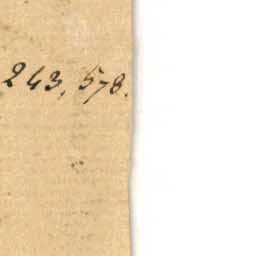 243, 578.